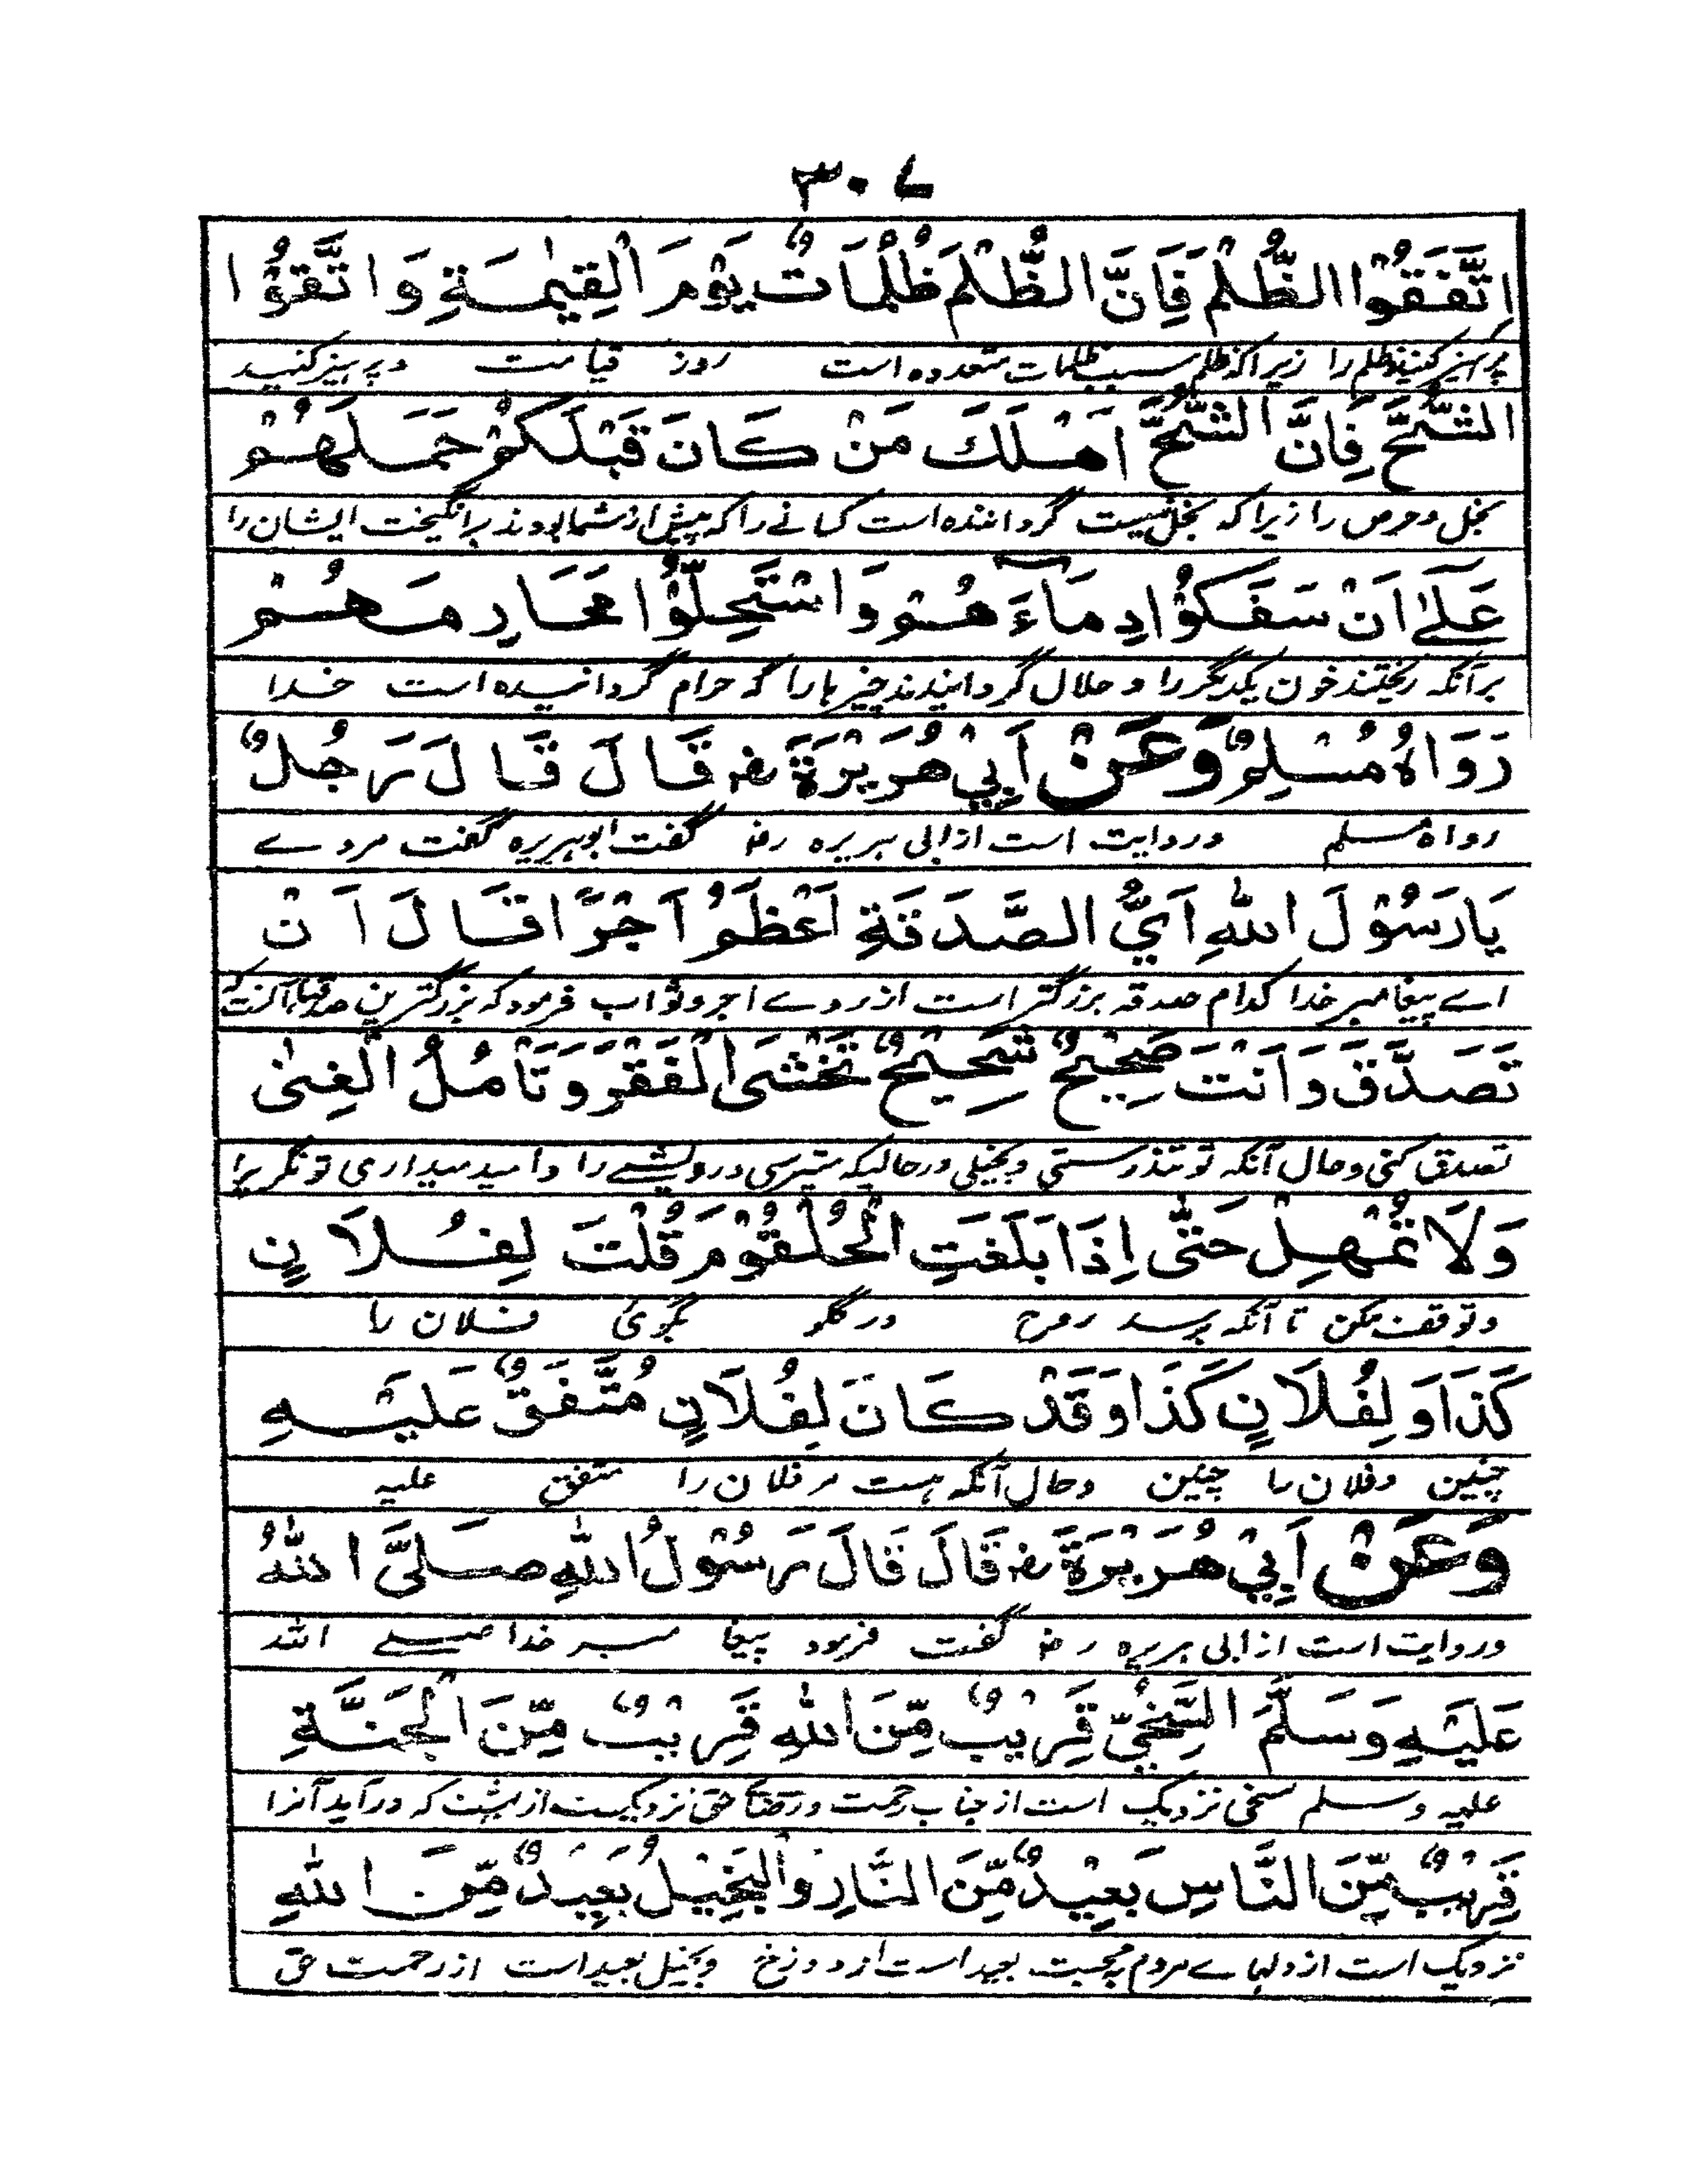 ۳۰۷
اِتَّقُوا الظُّلْمَ فَاِنَّ الظُّلْمَ ظُلُمَاتٌ يَوْمَ الْقِيٰمَةِ وَاتَّقُوْا
پرہیز کنید ظلم را زیراکہ ظلم سبب ظلمات متعددہ است روز قیامت و پرہیز کنید
الشُّحَّ فَاِنَّ الشُّحَّ اَهْلَكَ مَنْ كَانَ قَبْلَكُمْ حَمَلَهُمْ
بخل و حرص را زیرا کہ بخل نیست گردانندہ است کسانے را کہ پیش از شما بودند برانگیخت ایشان را
عَلٰى اَنْ سَفَكُوْا دِمَاءَهُمْ وَاسْتَحِلُّوْا مَحَارِمَهُمْ
برآنکہ ریختند خون یکدیگر را و حلال گردانیدند چیزہا را کہ حرام گردانیدہ است خدا
رَوَاهُ مُسْلِمٌ وَعَنْ اَبِيْ هُرَيْرَةَ رض قَالَ قَالَ رَجُلٌ
رواہ مسلم و روایت است از ابی ہریرہ رض گفت ابوہریرہ گفت مردے
يَا رَسُوْلَ اللّٰهِ اَيُّ الصَّدَقَةِ اَعْظَمُ اَجْرًا قَالَ اَنْ
اے پیغامبر خدا کدام صدقہ بزرگتر است از روے اجر و ثواب فرمود کہ بزرگترین صدقہا آنست کہ
تَصَدَّقَ وَاَنْتَ صَحِيْحٌ شَحِيْحٌ تَخْشَى الْفَقْرَ وَتَأْمُلُ الْغِنٰى
تصدق کنی و حال آنکہ تو تندرستی و بخیلی در حالیکہ میترسی درویشے را و امید میداری تونگری را
وَلَا تُمْهِلْ حَتّٰى اِذَا بَلَغَتِ الْحُلْقُوْمَ قُلْتَ لِفُلَانٍ
و توقف مکن تا آنکہ برسد روح در گلو بگوئی فلان را
كَذَا وَلِفُلَانٍ كَذَا وَقَدْ كَانَ لِفُلَانٍ مُتَّفَقٌ عَلَيْهِ
چنین و فلان را چنین و حال آنکہ ہست مر فلان را متفق علیہ
وَعَنْ اَبِيْ هُرَيْرَةَ رض قَالَ قَالَ رَسُوْلُ اللّٰهِ صَلَّى اللّٰهُ
و روایت است از ابی ہریرہ رض گفت فرمود پیغامبر خدا صلے اللہ
عَلَيْهِ وَسَلَّمَ السَّخِيُّ قَرِيْبٌ مِّنَ اللّٰهِ قَرِيْبٌ مِّنَ الْجَنَّةِ
علیہ وسلم سخی نزدیک است از جناب رحمت و رضائے حق نزدیکست از بہشت کہ درآید آنرا
قَرِيْبٌ مِّنَ النَّاسِ بَعِيْدٌ مِّنَ النَّارِ وَالْبَخِيْلُ بَعِيْدٌ مِّنَ اللّٰهِ
نزدیک است از دلہاے مردم بمحبت بعید است از دوزخ و بخیل بعید است از رحمت حق